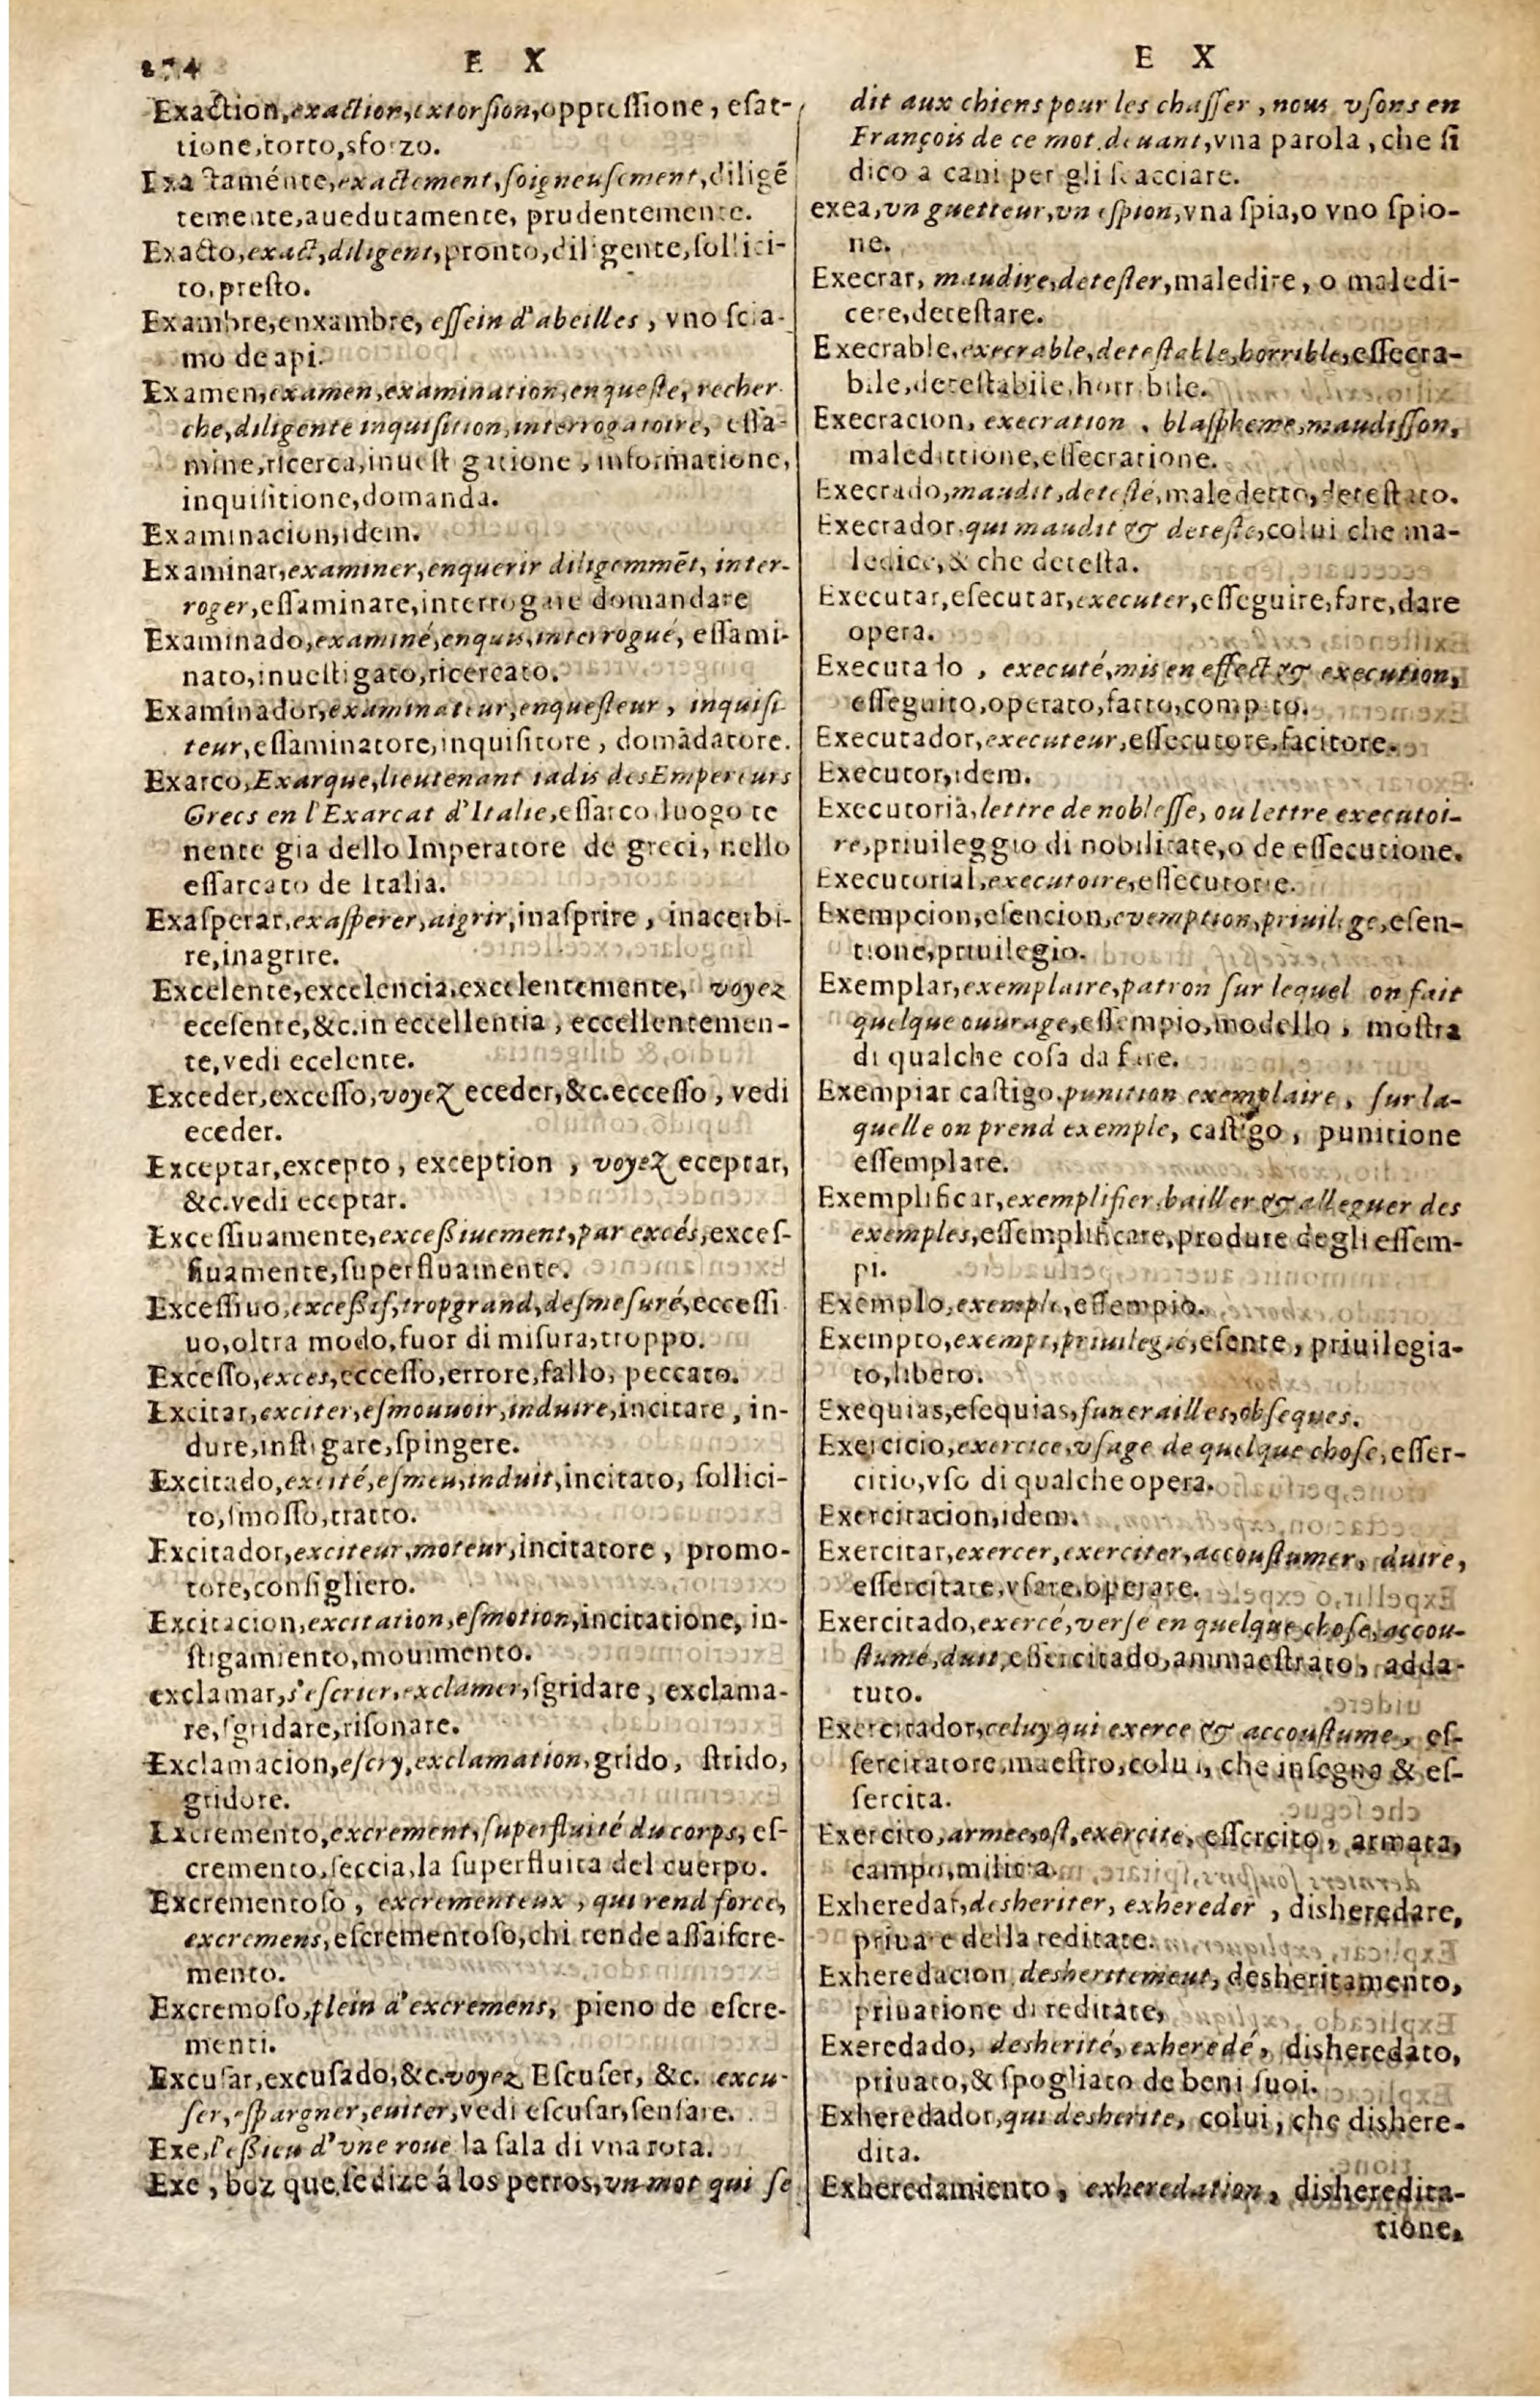 274 E X
Exaction, exaction, extorsion, oppressione, esat-
tione, torto, sforzo.
Exactaménte, exactement, soigneusement, diligẽ
temente, auedutamente, prudentemente.
Exacto, exact, diligent, pronto, diligente, sollici-
to, presto.
Exambre, enxambre, essein d'abeilles, vno scia-
mo de api.
Examen, examen, examination, enqueste, recher
che, diligente inquisition, interrogatoire, essa-
mine, ricerca, inuestigatione, informatione,
inquisitione, domanda.
Examinacion, idem.
Examinar, examiner, enquerir diligemmẽt, inter-
roger, essaminare, interrogare domandare
Examinado, examiné, enquis, interrogué, essami-
nato, inuestigato, ricercato.
Examinador, examinateur, enquesteur, inquisi
teur, essaminatore, inquisitore, domãdatore.
Exarco, Exarque, lieutenant iadis des Empereurs
Grecs en l'Exarcat d'Italie, essarco, luogo te
nente gia dello Imperatore de greci, nello
essarcato de Italia.
Exasperar, exasperer, aigrir, inasprire, inacerbi-
re, inagrire.
Excelente, excelencia, excelentemente, voyez
ecesente, &c. in eccellentia, eccellentemen-
te, vedi ecelente.
Exceder, excesso, voyez eceder, &c. eccesso, vedi
eceder.
Exceptar, excepto, exception, voyez eceptar,
&c. vedi eceptar.
Excessiuamente, excessiuement, par excés, exces-
siuamente, superfluamente.
Excessiuo, excessif, trop grand, desmesuré, eccessi
uo, oltra modo, fuor di misura, troppo.
Excesso, exces, eccesso, errore, fallo, peccato.
Excitar, exciter, esmouuoir, induire, incitare, in-
dure, instigare, spingere.
Excitado, excité, esmeu, induit, incitato, sollici-
to, smosso, tratto.
Excitador, exciteur, moteur, incitatore, promo-
tore, consigliero.
Excitacion, excitation, esmotion, incitatione, in-
stigamiento, mouimento.
exclamar, s'escrier, exclamer, sgridare, exclama-
re, sgridare, risonare.
Exclamacion, escry, exclamation, grido, strido,
gridore.
Excremento, excrement, superfluité du corps, es-
cremento, feccia, la superfluita del cuerpo.
Excrementoso, excrementeux, qui rend force,
excremens, escrementoso, chi rende assai scre-
mento.
Excremoso, plein d'excremens, pieno de escre-
menti.
Excusar, excusado, &c. voyez Escuser, &c. excu-
ser, espargner, euiter, vedi escusar, sensare.
Exe, l'essieu d'vne roue la sala di vna rota.
Exe, boz que se dize á los perros, vn mot qui se
E X
dit aux chiens pour les chasser, nous vsons en
François de ce mot, deuant, vna parola, che si
dico a cani per gli scacciare.
exea, vn guetteur, vn espion, vna spia, o vno spio-
ne.
Execrar, maudire, detester, maledire, o maledi-
cere, detestare.
Execrable, execrable, detestable, horrible, essecra-
bile, detestabile, horribile.
Execracion, execration, blaspheme, maudisson,
maledittione, essecratione.
Execrado, maudit, detesté, maledetto, detestato.
Execrador, qui maudit & deteste, colui che ma-
ledice, & che detesta.
Executar, esecutar, executer, esseguire, fare, dare
opera.
Executado, executé, mis en effect & execution,
esseguito, operato, fatto, compito.
Executador, executeur, essecutore, facitore.
Executor, idem.
Executoria, lettre de noblesse, ou lettre executoi-
re, priuileggio di nobilitate, o de essecutione.
Executorial, executoire, essecutorie.
Exempcion, esencion, exemption, priuilege, esen-
tione, priuilegio.
Exemplar, exemplaire, patron sur lequel on fait
quelque ouurage, essempio, modello, mostra
di qualche cosa da fare.
Exempiar castigo, punition exemplaire, sur la-
quelle on prend exemple, castigo, punitione
essemplare.
Exemplificar, exemplifier, bailler & alleguer des
exemples, essemplificare, produre degli essem-
pi.
Exemplo, exemple, essempio.
Exempto, exempt, priuilegié, esente, priuilegia-
to, libero.
Exequias, esequias, funerailles, obseques.
Exercicio, exercice, vsage de quelque chose, esser-
citio, vso di qualche opera.
Exercitacion, idem.
Exercitar, exercer, exerciter, accoustumer, duire,
essercitare, vsare, operare.
Exercitado, exercé, versé en quelque chose, accou-
stumé, duit, essercitado, ammaestrato, adda-
tuto.
Exercitador, celuy qui exerce & accoustume, es-
sercitatore, maestro, colui, che insegna & es-
sercita.
Exercito, armee, ost, exercite, essercito, armata,
campo, militia.
Exheredar, desheriter, exhereder, disheredare,
priuare della reditate.
Exheredacion, desheritement, desheritamento,
priuatione di reditate,
Exeredado, desherité, exheredé, disheredato,
priuato, & spogliato de beni suoi.
Exheredador, qui desherite, colui, che dishere-
dita.
Exheredamiento, exheredation, disheredita-
tione,